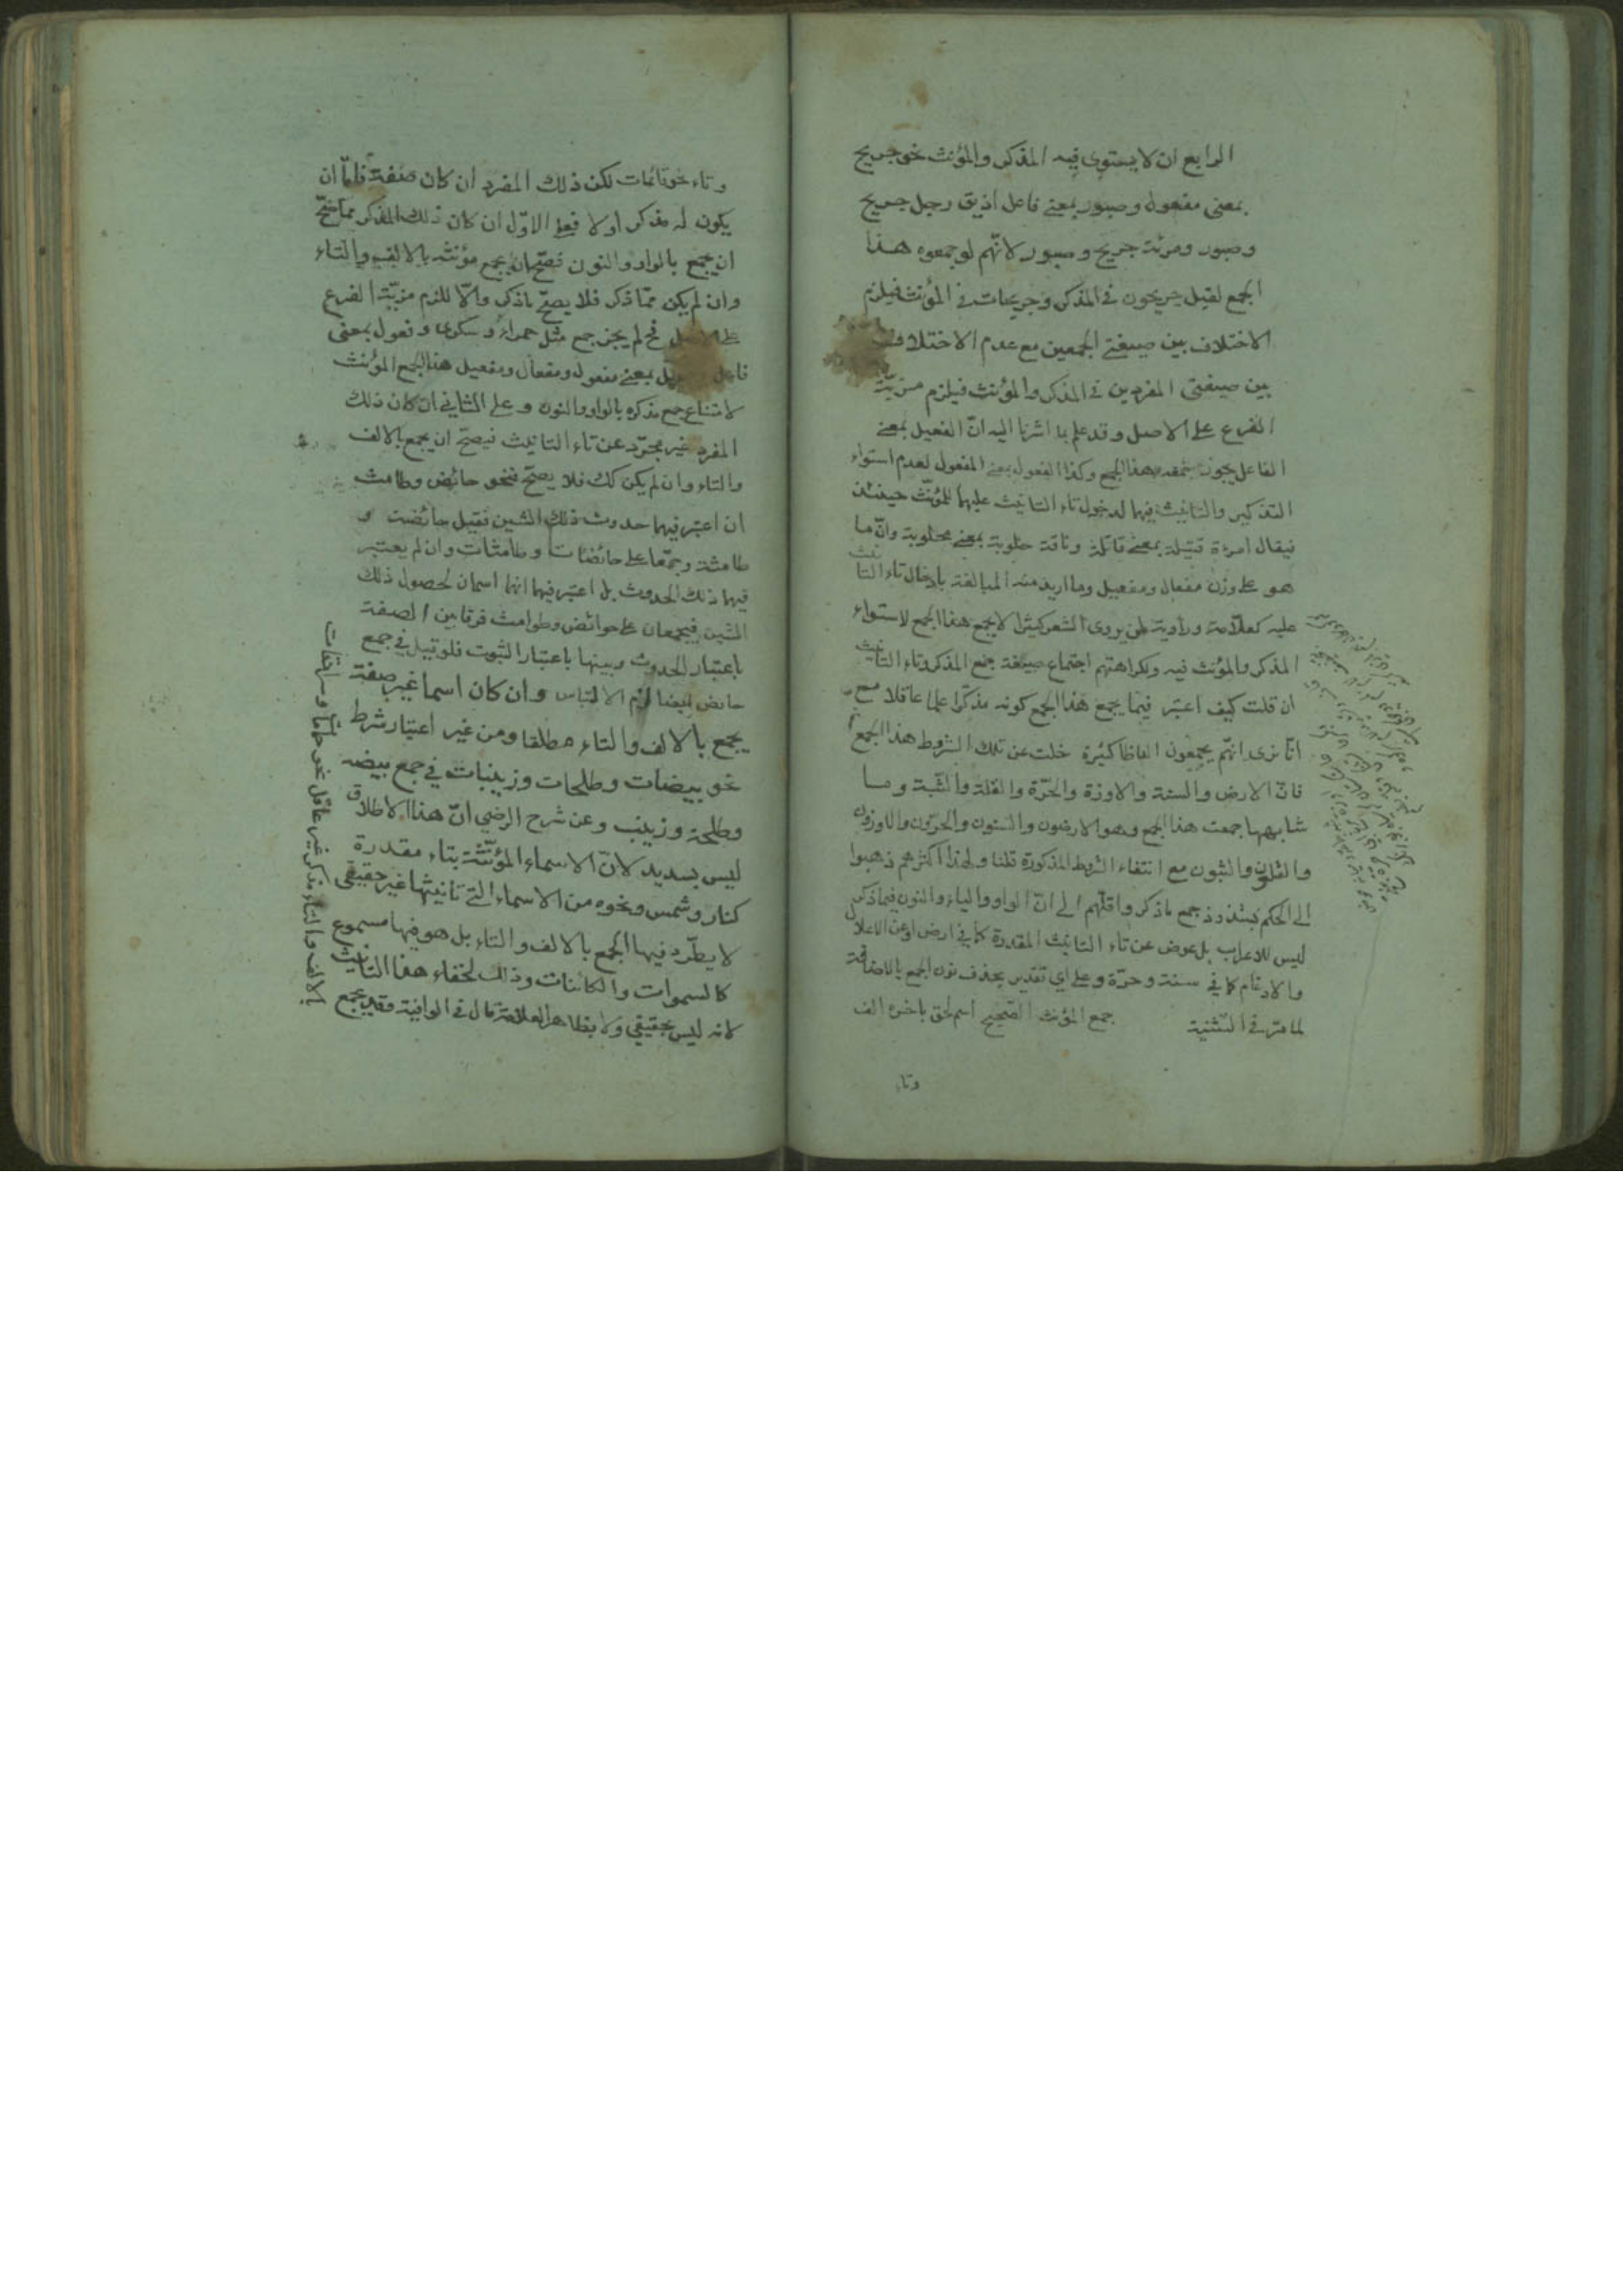 الرابع ان لا يستوي فيه المذكر والمؤنث نحو جريح
بمعنى مفعول وصبور بمعنى فاعل اذ يق رجل جريح
وصبور ومرئة جريح وصبور لانهم لو جمعوه هذا
الجمع لقيل جريحون في المذكر وجريحات في المؤنث فيلزم
الاختلاف بين صيغتي الجمعين مع عدم الاختلاف
بين صيغتي المفردين في المذكر والمؤنث فيلزم مزيّة
الفرع على الاصل وقد علم بما اشرنا اليه انّ الفعيل بمعنى
الفاعل يجوز هذا الجمع وكذا الفعول بمعنى المفعول لعدم استواء
التذكير والتانيث فيهما لدخول تاء التانيث عليهما للمؤنّث حينئذ
فيقال امرءة قتيلة بمعنى قاتلة وناقة حلوبة بمعنى محلوبة وانّ ما
هو على وزن مفعال ومفعيل وما اريد منه المبالغة بادخال تاء التانيث
عليه كعلّامة وراوية لمن يروى الشعر كثيرا لا يجمع هذا الجمع لاستواء
المذكر والمؤنث فيه ولكراهتهم اجتماع صيغة جمع المذكر وتاء التانيث
ان قلت كيف اعتبر فيما يجمع هذا الجمع كونه مذكرا علما عاقلا مع
انّا نرى انهم يجمعون الفاظا كثيرة خلت عن تلك الشروط هذا الجمع
فانّ الارض والسنة والاوزة والحرّة والقلة والثّبة وما
شابهها جمعت هذا الجمع وهو الارضون والسنون والحرّون والاوزون
والقلون والثبون مع انتفاء الشروط المذكورة قلنا ولهذا اكثرهم ذهبوا
الى الحكم بشذوذ جمع ما ذكر واقلّهم الى انّ الواو والياء والنون فيما ذكر
ليس للاعراب بل عوض عن تاء التانيث المقدرة كما في ارض او عن الاعلال
والادغام كما في سنة وحرّة وعلى اي تقدير يحذف نون الجمع بالاضافة
لما مرّ في التثنية جمع المؤنث الصحيح اسم لحق باخره الف
وتاء
وتاء نحو قائمات لكن ذلك المفرد ان كان صفة فامّا ان
يكون له مذكر او لا فعلى الاوّل ان كان ذلك المذكر ممّا صحّ
ان يجمع بالواو والنون فصحّ ان يجمع مؤنثه بالالف والتاء
وان لم يكن ممّا ذكر فلا يصحّ ما ذكر والّا للزم مزيّة الفرع
على الاصل فح لم يجز جمع مثل حمراء وسكرى وفعول بمعنى
فاعل بمعنى مفعول ومفعال ومفعيل هذا الجمع المؤنث
لامتناع جمع مذكره بالواو والنون وعلى الثاني ان كان ذلك
المفرد غير مجرّد عن تاء التانيث فيصحّ ان يجمع بالالف
والتاء وان لم يكن كك فلا يصحّ فنحو حائض وطامث
ان اعتبر فيهما حدوث ذلك الشين فقيل حائضة و
طامثة وجمعا على حائضات وطامثات وان لم يعتبر
فيهما ذلك الحدوث بل اعتبر فيهما انهما اسمان لحصول ذلك
الشين فيجمعان على حوائض وطوامث فرقا بين الصفة
باعتبار الحدوث وبينها باعتبار الثبوت فلو قيل في جمع
حائض ايضا لزم الالتباس وان كان اسما غير صفة
يجمع بالالف والتاء مطلقا ومن غير اعتبار شرط
نحو بيضات وطلحات وزينبات في جمع بيضه
وطلحة وزينب وعن شرح الرضي انّ هذا الاطلاق
ليس بسديد لانّ الاسماء المؤنّثة بتاء مقدرة
كنار وشمس ونحوه من الاسماء التي تانيثها غير حقيقي
لا يطّرد فيها الجمع بالالف والتاء بل هو فيها مسموع
كالسموات والكائنات وذلك لخفاء هذا التانيث
لانه ليس بحقيقي ولا بظاهر العلامة قال في الوافية وقد يجمع
بالالف والتاء مذكر غير عاقل نحو حمامات وسرادقات